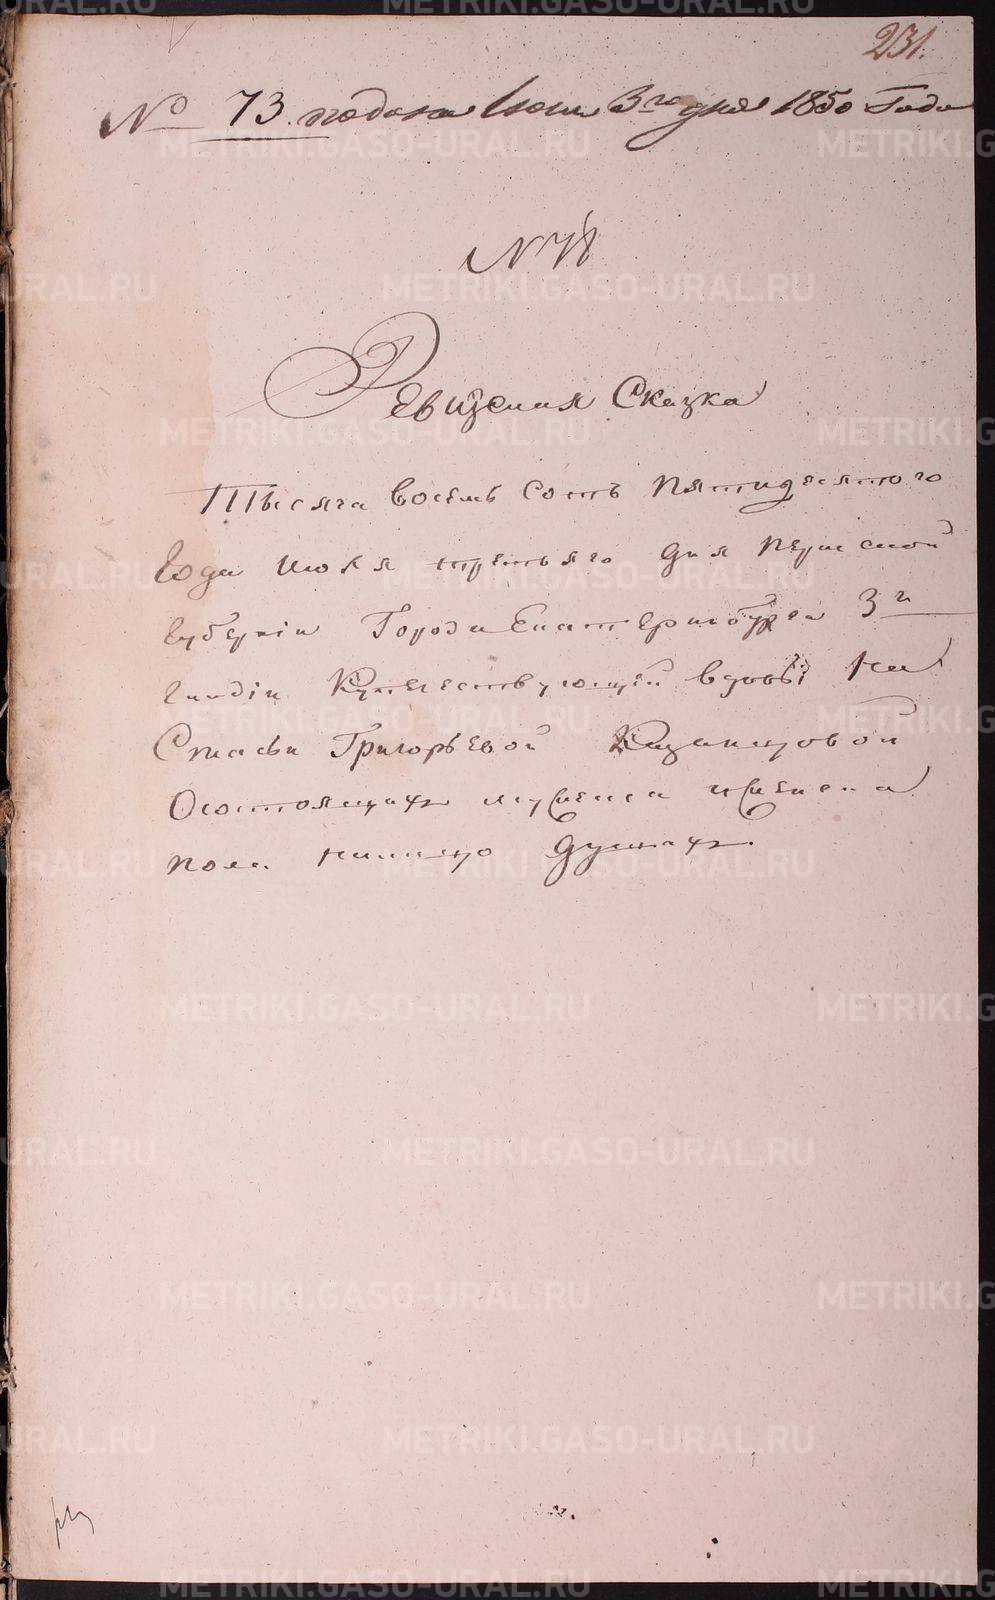 231.
№ 73. подана Июля 3го дня 1850 Года
№ 78
Ревизская Сказка
Тысяча восемь сотъ пятидесятого
Года июля третьяго дня пермской
губернiи Города Екатеринбурга 3й
гилдiи Купечествующей вдовѣ На
Стасьи Григорьевой Казанцовой
О состоящихъ мужеска и женска
пола налицо душахъ.
METRIKI.GASO-URAL.RU